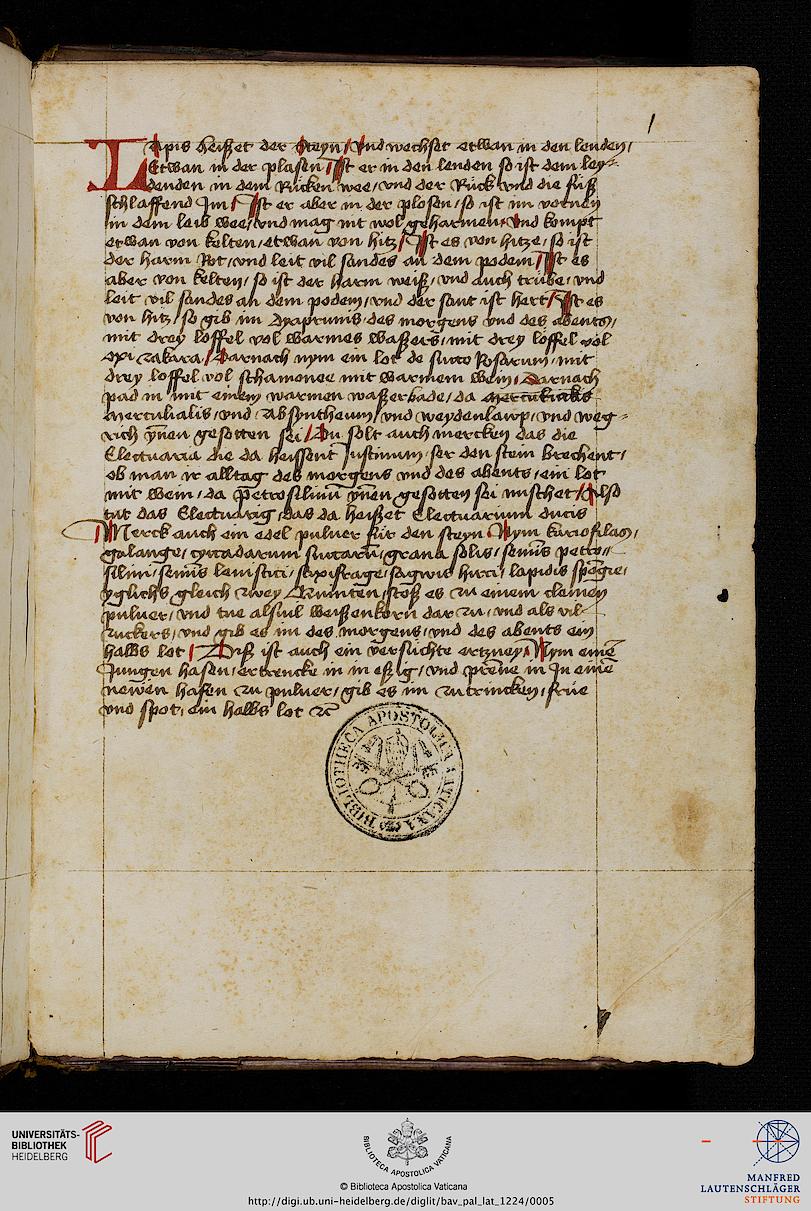 1
Lapis heißet der steyn / vnd wechset etwan in den lenden /
Etwan in der plasen / Ist er in den lenden so ist dem ley=
denden in dem Rucken wee / vnd der Ruck vnd die füß
schlaffend Im / Ist er aber in der plosen / so ist im vornen
in dem leib wee / vnd mag nit wol geharmen / vnd kompt
etwan von kelten / etwan von hitz / Ist es von hitze / so ist
der harm Rot / vnd leit vil sandes an dem podem / Ist es
aber von kelten / so ist der harm weiß / vnd auch trübe / vnd
leit vil sandes an dem podem / vnd der sant ist hert / Ist es
von hitz / so gib im dyaprunis / des morgens vnd des abents /
mit drey loffel vol warmes waßers / mit drey loffel vol
oxi zakara / Darnach nym ein lot de succo Rosarum / mit
drey loffel vol schamonee mit warmem wein / Darnach
pad in mit einem warmen waßerbade / da
mercurialis / vnd Absyntheum / vnd weydenlawp / vnd weg=
rich ynnen gesotten sei / Du solt auch mercken das die
Electuaria die da heissent Justinum / ser den stein brechent /
ob man ir alltag des morgens vnd des abents / ein lot
mit wein / da petrosilinū ynnen gesotten sei mischet / Also
tut das Electuarig / das da heißet Electuarium ducis
Merck auch ein edel puluer für den steyn / Nym kariofilas /
galange / succarū / grana solis / semīs petro=
silini / semīs leuistici / saxifrage / sagwis hirci / lapidis spōgie /
yglichs gleich zwey / stoß es zu einem cleinen
puluer / vnd tue alsuil weißenkorn dar zu / vnd als vil
zuckers / vnd gib es im des morgens / vnd des abents ein
halbs lot / Diß ist auch ein versuchte ertzney / Nym einē
Jungen hasen / ertrencke in in eßig / vnd prēne in In einē
newen hafen zu puluer / gib es im zutrincken / frue
vnd spot / ein halbs lot zc
BIBLIOTHECA APOSTOLICA VATICANA
UNIVERSITÄTS-
BIBLIOTHEK
HEIDELBERG
BIBLIOTECA APOSTOLICA VATICANA
© Biblioteca Apostolica Vaticana
http://digi.ub.uni-heidelberg.de/diglit/bav_pal_lat_1224/0005
MANFRED
LAUTENSCHLÄGER
STIFTUNG